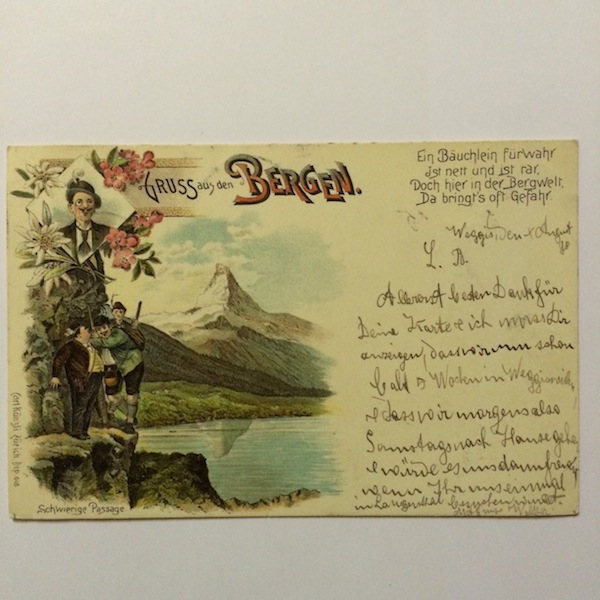 GRUSS aus den BERGEN.
Ein Bäuchlein fürwahr
Ist nett und ist rar,
Doch hier in der Bergwelt,
Da bringt's oft Gefahr.
Weggis, den August
L. B.
Allererst besten Dank für
Deine Karte & ich muss Dir
anzeigen, dass wir nun schon
bald 3 Wochen in Weggis
& dass wir morgens also
Samstags nach Hause gehen
& würde es uns dann freuen,
wenn Ihr uns einmal
in Langenthal besuchen würdet.
Carl Künzli, Zürich
Schwierige Passage